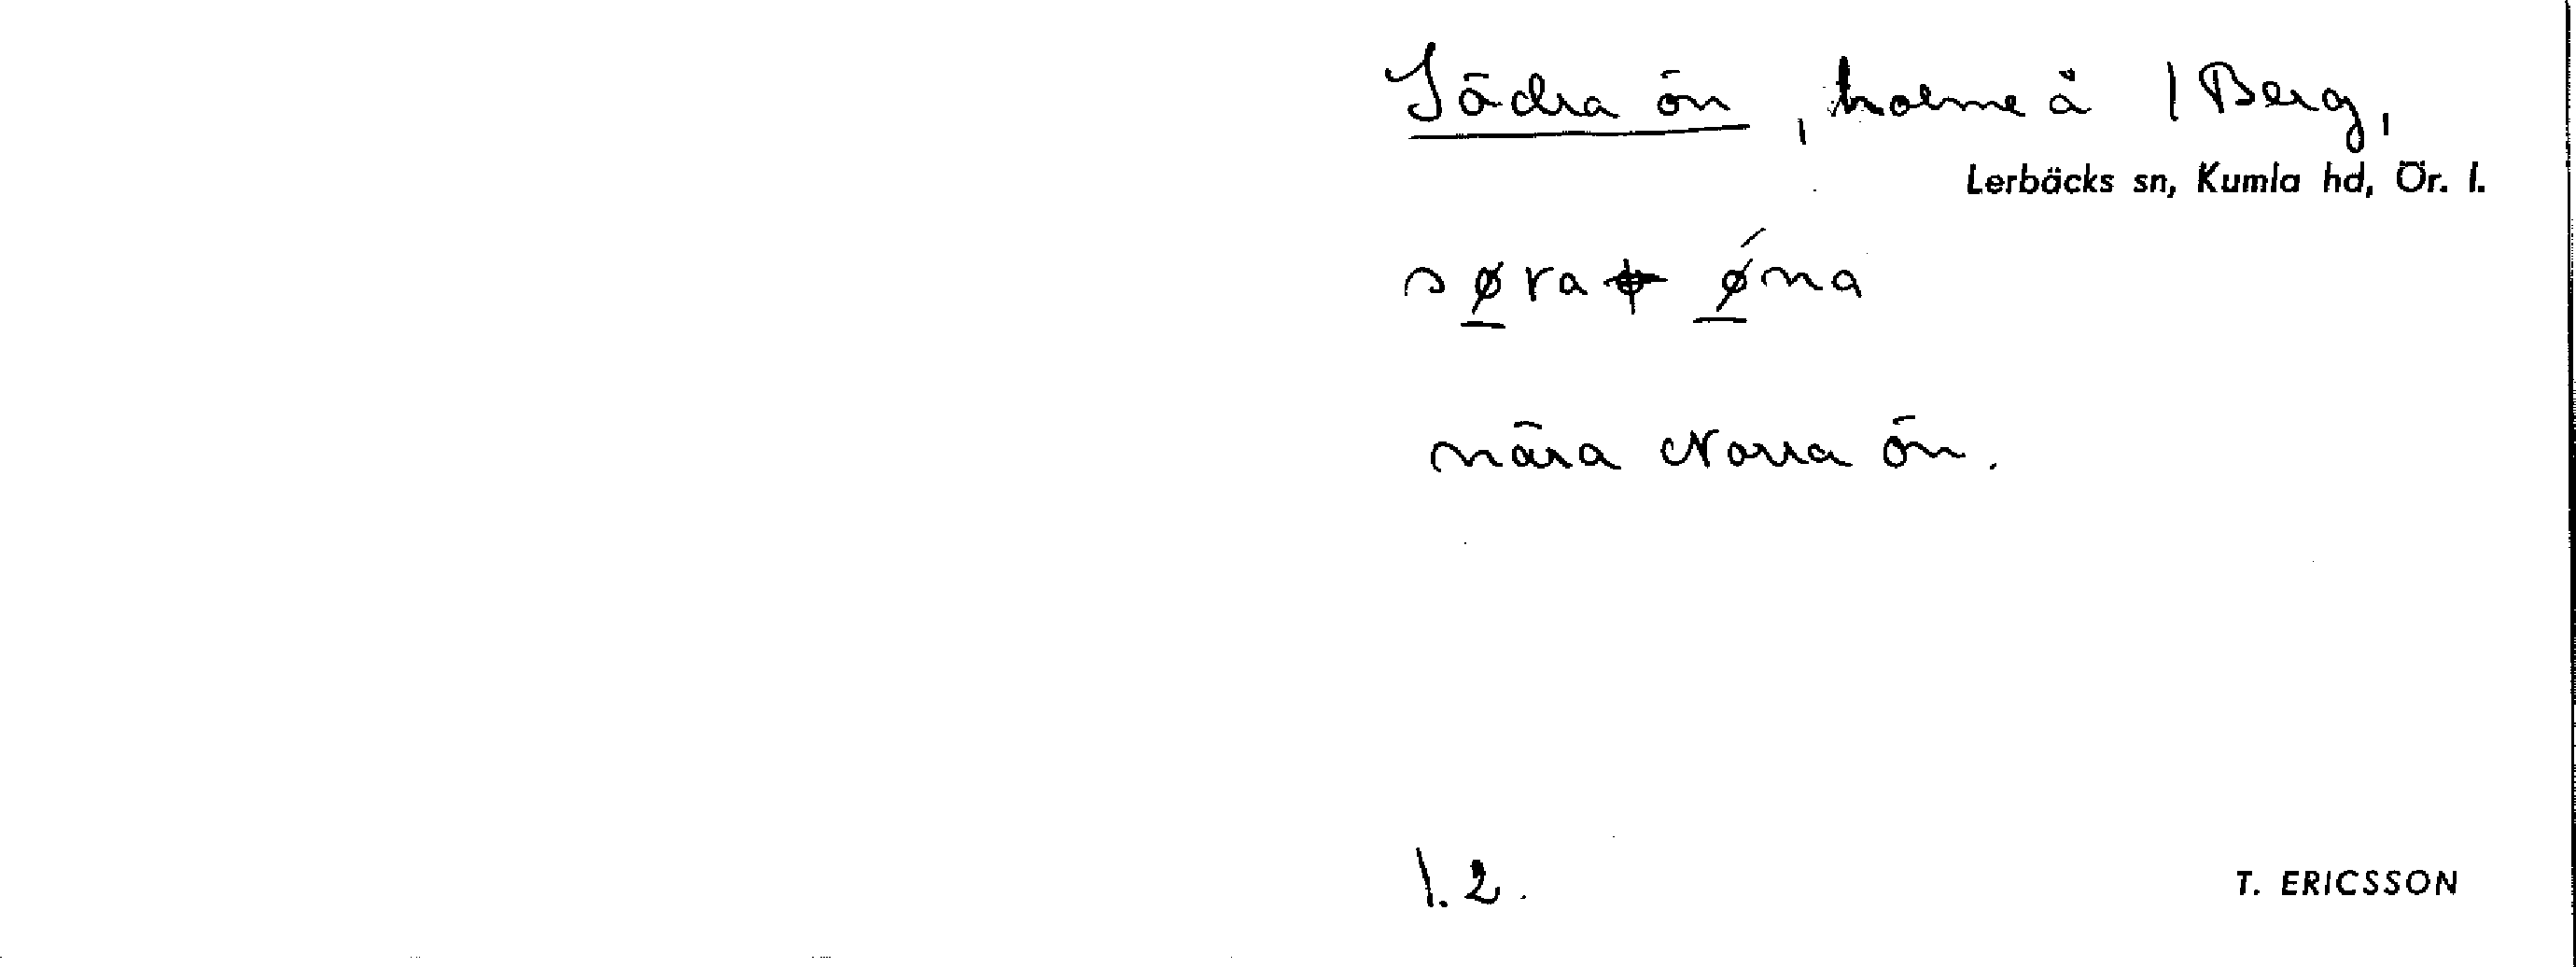 Södra ön, holme å 1 Berg,
Lerbäcks sn, Kumla hd, Ör. l.
søra ǿna
nära Norra ön.
1.2.
T. ERICSSON